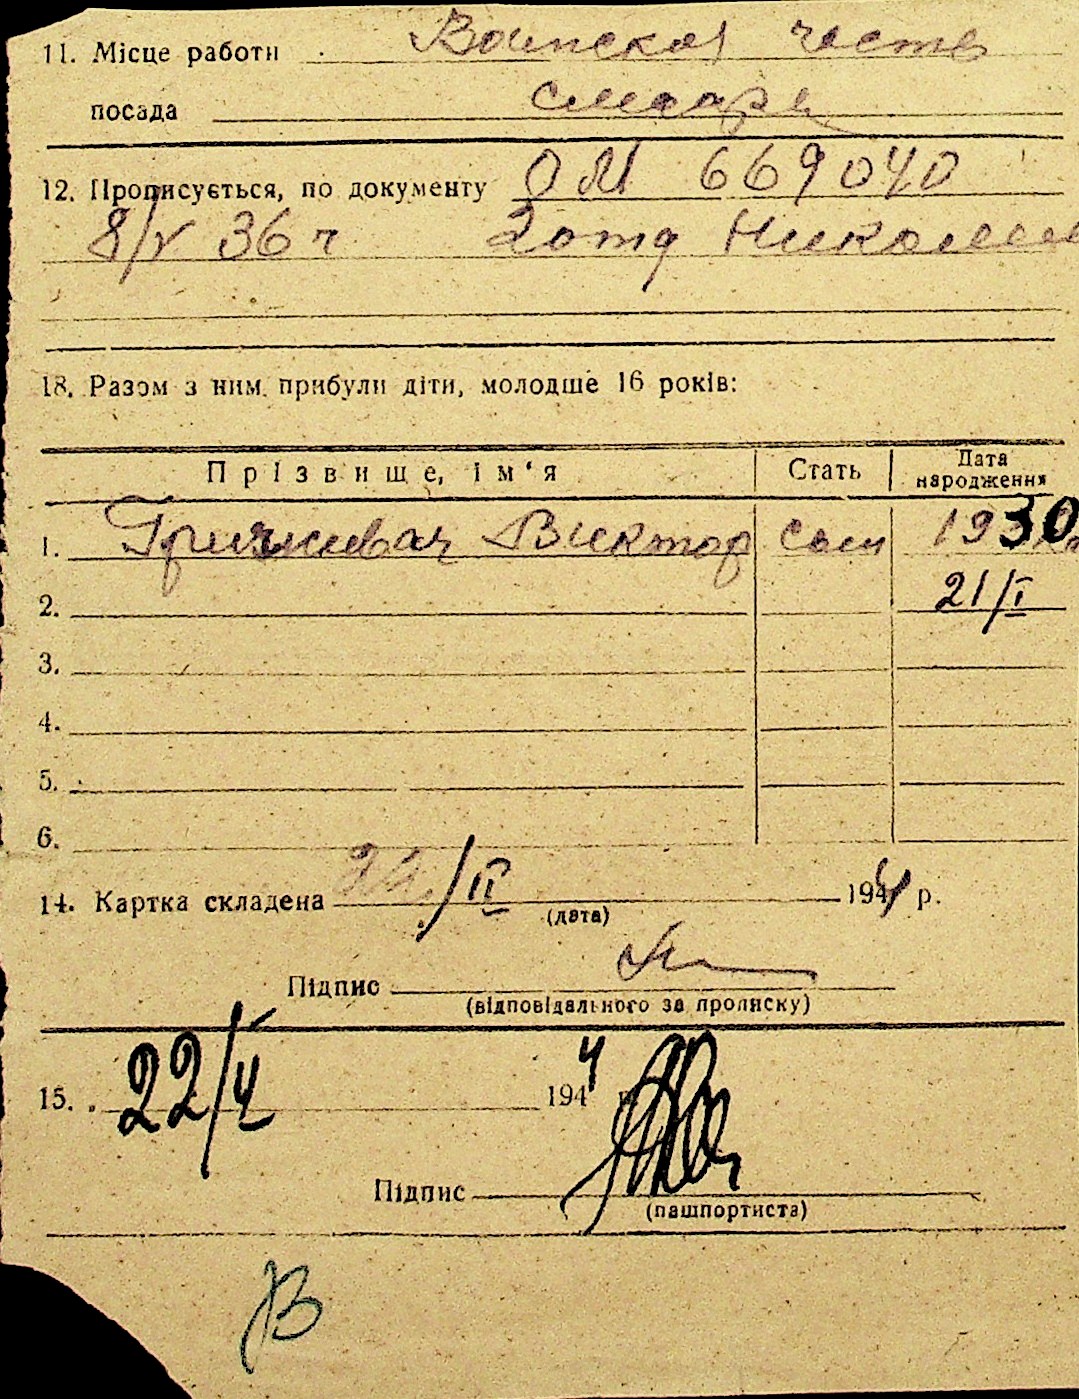 11. Місце работи Воинская часть
посада слесарь
12. Прописується, по документу ОМ 669040
8/V 36 г 2 отд Николаев
18. Разом з ним прибули діти, молодше 16 років:
Прізвище, ім'я Стать Дата народження
1. Виктор сын 1930
2. 21/I
3.
4.
5.
6.
14. Картка складена /II 1944 р.
(дата)
Підпис
(відповідального за прописку)
15. 22/V 1944 р
Підпис
(пашпортиста)
В